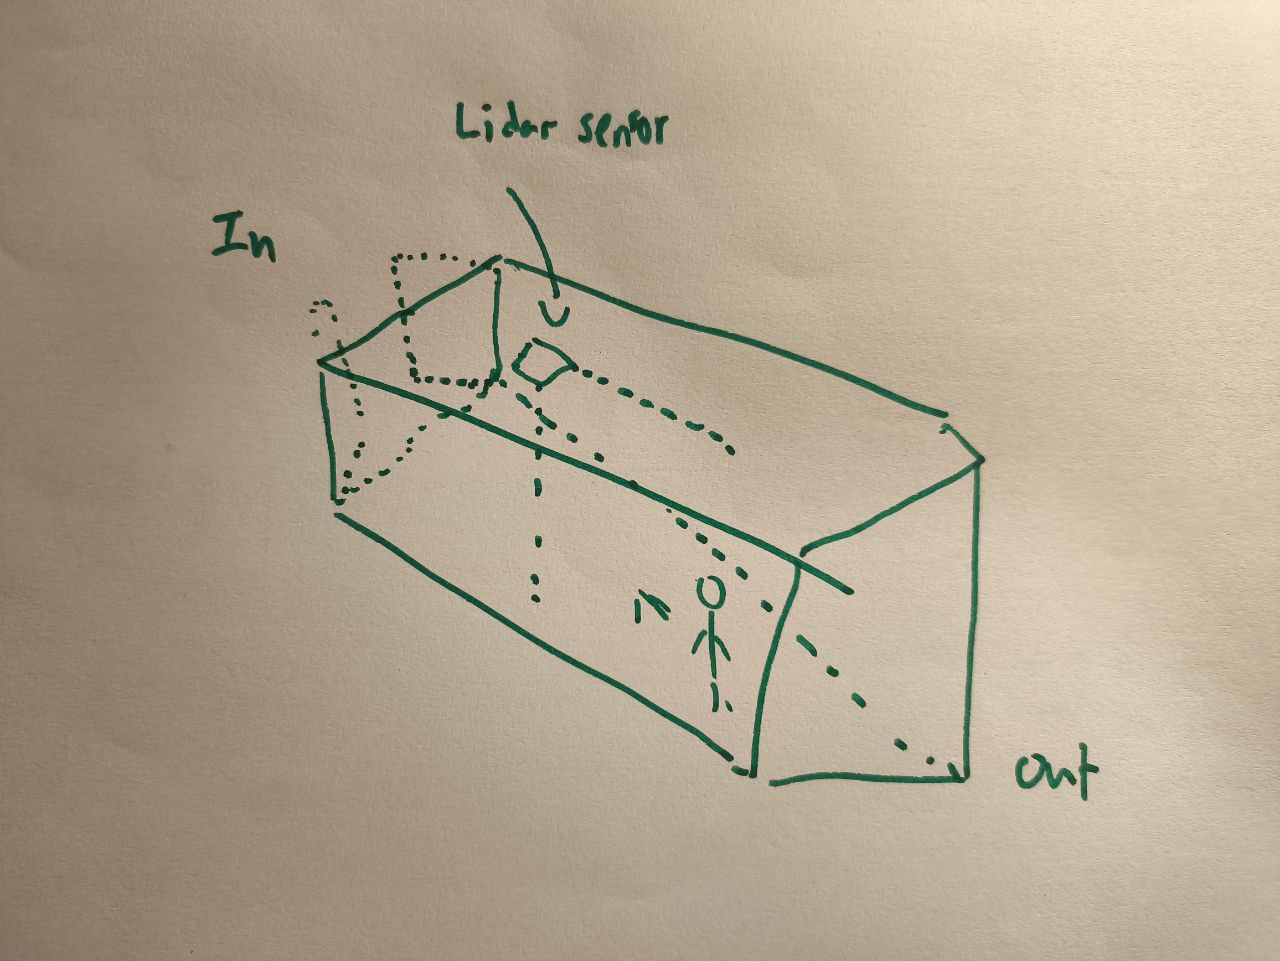 Lidar sensor
In
Out